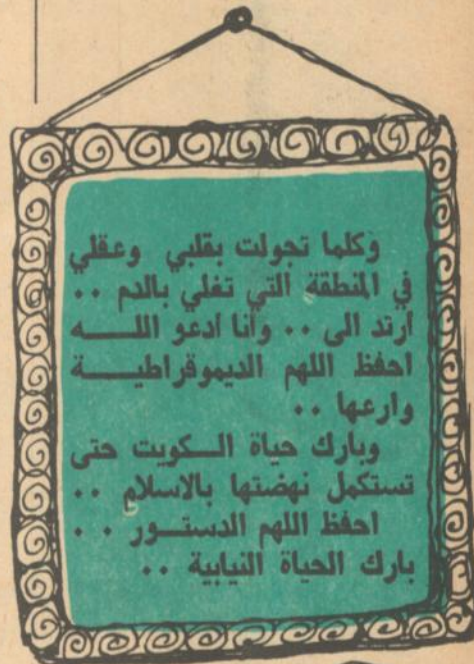 وكلما تجولت بقلبي وعقلي
في المنطقة التي تغلي بالدم ..
ارتد الى .. وأنا ادعو اللـــه
احفظ اللهم الديموقراطيـــة
وارعها ..
وبارك حياة الــكويت حتى
تستكمل نهضتها بالاسلام ..
احفظ اللهم الدستـــور ..
بارك الحياة النيابية ..